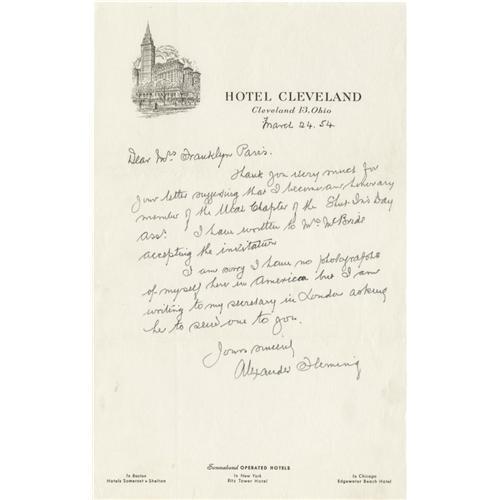 HOTEL CLEVELAND
Cleveland 13, Ohio
March 24. 54
Dear Mrs Franklyn Paris.
Thank you very much for
your letter suggesting that I become an honorary
member of the Utah Chapter of the Shut In's Day
Assn. I have written to Mrs McBride
accepting the invitation
I am sorry I have no photographs
of myself here in America but I am
writing to my secretary in London asking
her to send one to you.
Yours sincerely
Alexander Fleming
Sonnabend OPERATED HOTELS
In Boston
Hotels Somerset • Shelton
In New York
Ritz Tower Hotel
In Chicago
Edgewater Beach Hotel